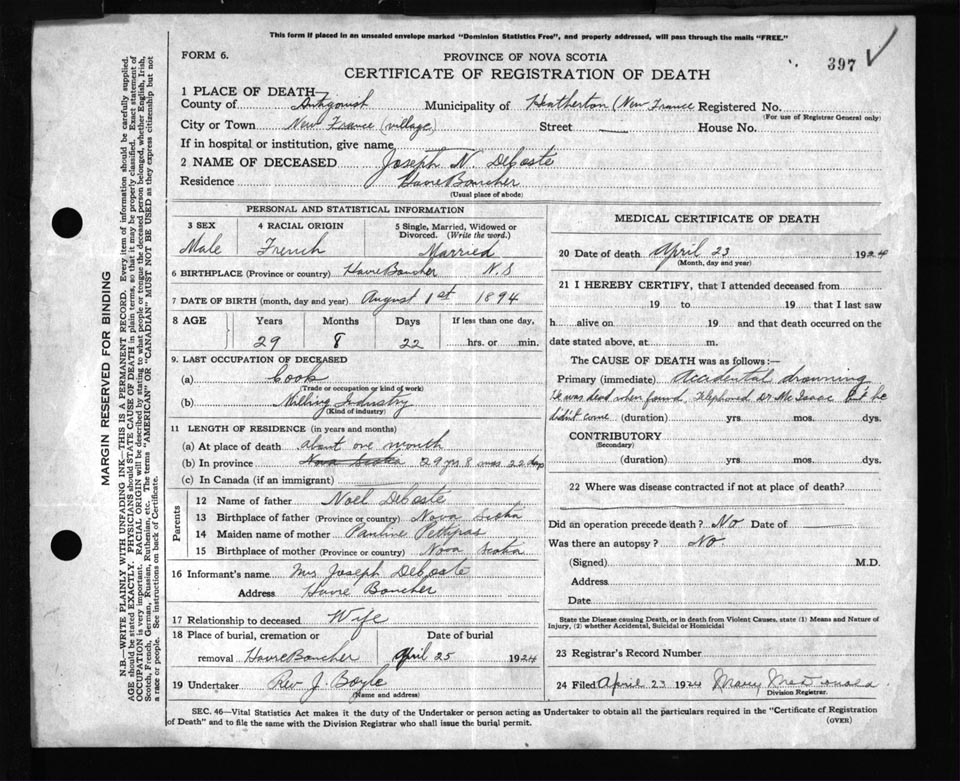 This form if placed in an unsealed envelope marked "Dominion Statistics Free", and properly addressed, will pass through the mails "FREE."
FORM 6.
PROVINCE OF NOVA SCOTIA
397
CERTIFICATE OF REGISTRATION OF DEATH
1 PLACE OF DEATH—
County of Antigonish Municipality of Heatherton (New France Registered No.
(For use of Registrar General only)
City or Town New France (village) Street — House No.
If in hospital or institution, give name
2 NAME OF DECEASED Joseph N. DeCoste
Residence Havre Boucher
(Usual place of abode)
PERSONAL AND STATISTICAL INFORMATION
3 SEX 4 RACIAL ORIGIN 5 Single, Married, Widowed or Divorced. (Write the word.)
Male French Married
6 BIRTHPLACE (Province or country) Havre Boucher N.S
7 DATE OF BIRTH (month, day and year) August 1st 1894
8 AGE Years Months Days If less than one day,
29 8 22 hrs. or min.
9. LAST OCCUPATION OF DECEASED
(a) Cook
(Trade or occupation or kind of work)
(b) Milling Industry
(Kind of industry)
11 LENGTH OF RESIDENCE (in years and months)
(a) At place of death about one month
(b) In province Nova Scotia 29 yrs 8 mos 22 days
(c) In Canada (if an immigrant)
Parents
12 Name of father Noel DeCoste
13 Birthplace of father (Province or country) Nova Scotia
14 Maiden name of mother Pauline Pettipas
15 Birthplace of mother (Province or country) Nova Scotia
16 Informant's name Mrs Joseph DeCoste
Address Havre Boucher
17 Relationship to deceased Wife
18 Place of burial, cremation or Date of burial
removal Havre Boucher April 25 1924
19 Undertaker Rev J. Boyle
(Name and address)
MEDICAL CERTIFICATE OF DEATH
20 Date of death April 23 1924
(Month, day and year)
21 I HEREBY CERTIFY, that I attended deceased from
19 to 19 that I last saw
h alive on 19 and that death occurred on the
date stated above, at m.
The CAUSE OF DEATH was as follows:—
Primary (immediate) Accidental drowning
He was dead when found. Telephoned Dr McIsaac but he
didn't come (duration) yrs. mos. dys.
CONTRIBUTORY
(Secondary)
(duration) yrs. mos. dys.
22 Where was disease contracted if not at place of death?
Did an operation precede death? No Date of —
Was there an autopsy? No
(Signed) M.D.
Address
Date
State the Disease causing Death, or in death from Violent Causes, state (1) Means and Nature of
Injury, (2) whether Accidental, Suicidal or Homicidal
23 Registrar's Record Number
24 Filed April 23 1924 Mary McDonald
Division Registrar.
SEC. 46—Vital Statistics Act makes it the duty of the Undertaker or person acting as Undertaker to obtain all the particulars required in the "Certificate of Registration
of Death" and to file the same with the Division Registrar who shall issue the burial permit. (OVER)
MARGIN RESERVED FOR BINDING
N.B.—WRITE PLAINLY WITH UNFADING INK—THIS IS A PERMANENT RECORD. Every item of information should be carefully supplied.
AGE should be stated EXACTLY. PHYSICIANS should STATE CAUSE OF DEATH in plain terms, so that it may be properly classified. Exact statement of
OCCUPATION is very important. RACIAL ORIGIN will be described by stating to what people or tongue the deceased person belonged, whether English, Irish,
Scotch, French, German, Russian, Ruthenian, etc. The terms "AMERICAN" OR "CANADIAN" MUST NOT BE USED as they express citizenship but not
a race or people. See instructions on back of Certificate.